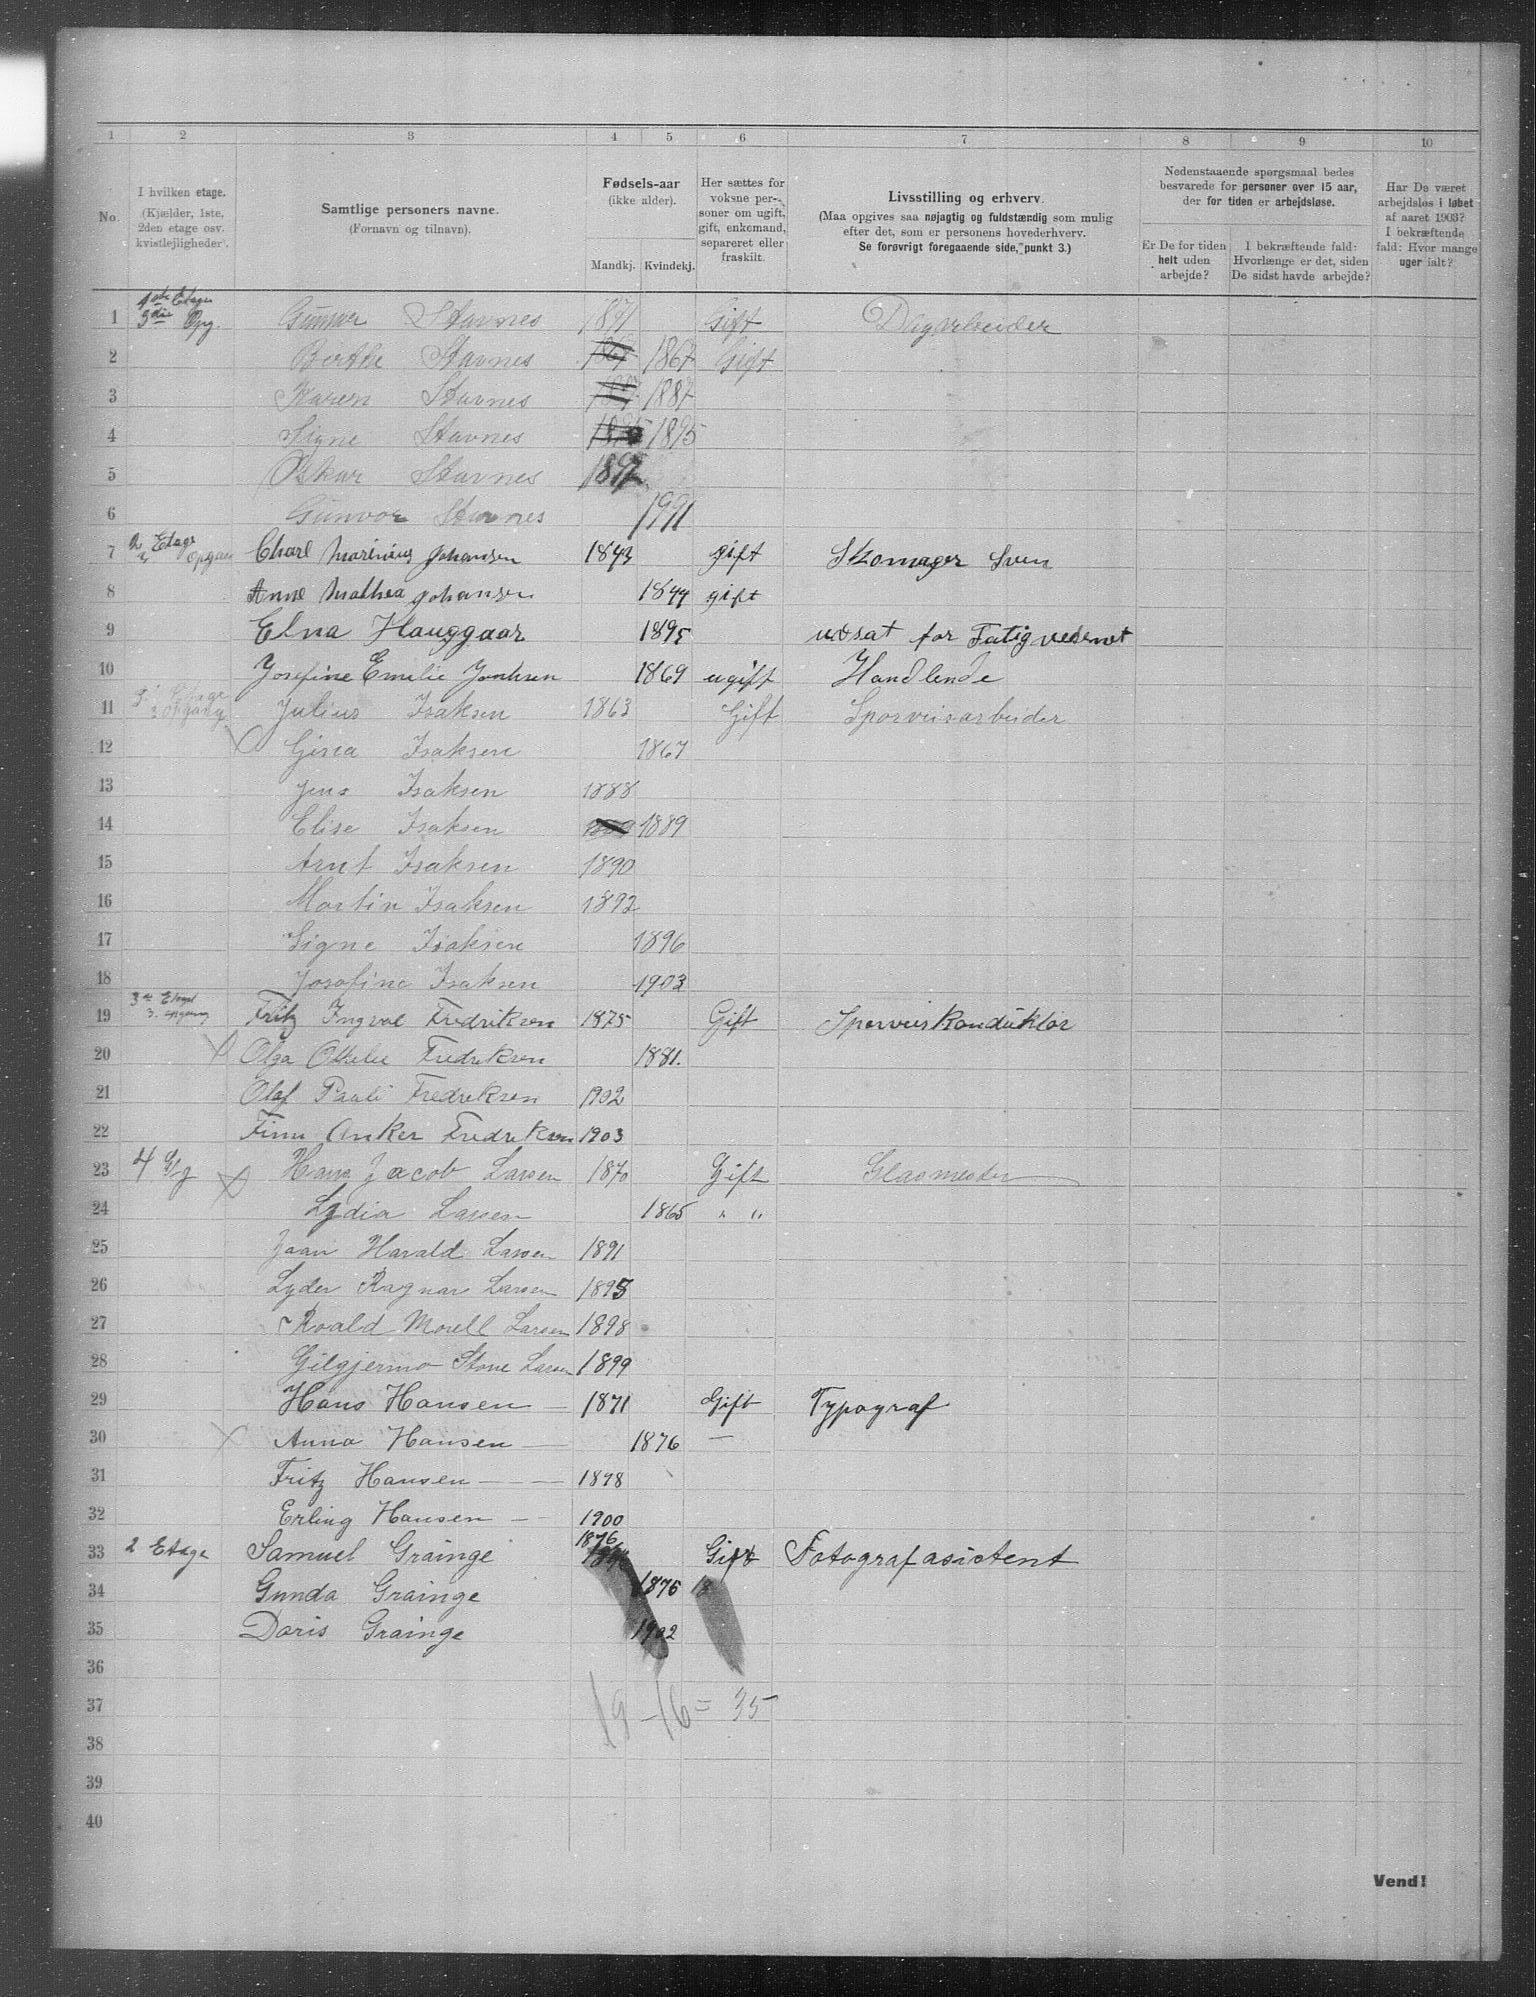 1 2 3 4 5 6 7 8 9 10
No.
I hvilken etage.
(Kjælder, 1ste,
2den etage osv.
kvistleiligheder).
Samtlige personers navne.
(Fornavn og tilnavn).
Fødsels-aar
(ikke alder).
Mandkj. Kvindekj.
Her sættes for
voksne per-
soner om ugift,
gift, enkemand,
separeret eller
fraskilt.
Livsstilling og erhverv.
(Maa opgives saa nøjagtig og fuldstændig som mulig
efter det, som er personens hovederhverv.
Se forøvrigt foregaaende side, punkt 3.)
Nedenstaaende spørgsmaal bedes
besvarede for personer over 15 aar,
der for tiden er arbejdsløse.
Er De for tiden
helt uden
arbejde?
I bekræftende fald:
Hvorlænge er det, siden
De sidst havde arbejde?
Har De været
arbejdsløs i løbet
af aaret 1903?
I bekræftende
fald: Hvor mange
uger ialt?
1ste Etage
1 3die Opg. Gunnar Stavnes 1871 Gift Dagarbeider
2 Berthe Stavnes 1867 1867 Gift
3 Karen Stavnes 1887 1887
4 Signe Stavnes 1895 1895
5 Oskar Stavnes 1897
6 Gunvor Stavnes 1991
2 Etage
7 opgan Charl Marinius Johansen 1843 gift Skomager Sven
8 Anne Mathea Johansen 1844 gift
9 Elna Hauggaar 1895 udsat for Fatigvesenet
10 Josefine Emilie Jonhsen 1869 ugift Handlende
Etage
11 3 opgang Julius Isaksen 1863 Gift Sporveisarbeider
12 Gina Isaksen 1867
13 Jens Isaksen 1888
14 Elise Isaksen 1889
15 Arnt Isaksen 1890
16 Martin Isaksen 1892
17 Signe Isaksen 1896
18 Josefine Isaksen 1903
3 Etage
19 3. opgang Fritz Ingval Fredriksen 1875 Gift Sporveiskonduktør
20 Olga Otthelie Fredriksen 1881.
21 Olaf Pauli Fredriksen 1902
22 Finn Anker Fredriksen 1903
23 4 Hans Jacob Larsen 1870 Gift Glasmester
24 Lydia Larsen 1865 " "
25 Jaan Harald Larsen 1891
26 Lyder Ragnar Larsen 1895
27 Roald Morell Larsen 1898
28 Gilgjermo Stone Larsen 1899
29 Hans Hansen — 1871 Gift Typograf
30 Anna Hansen — 1876 —
31 Fritz Hansen — — — 1898
32 Erling Hansen — — 1900
1876
33 2 Etage Samuel Grainge Gift Fotografasistent
34 Gunda Grainge 1876 18
35 Doris Grainge 1902
36
37 19 - 16 = 35
38
39
40
Vend!